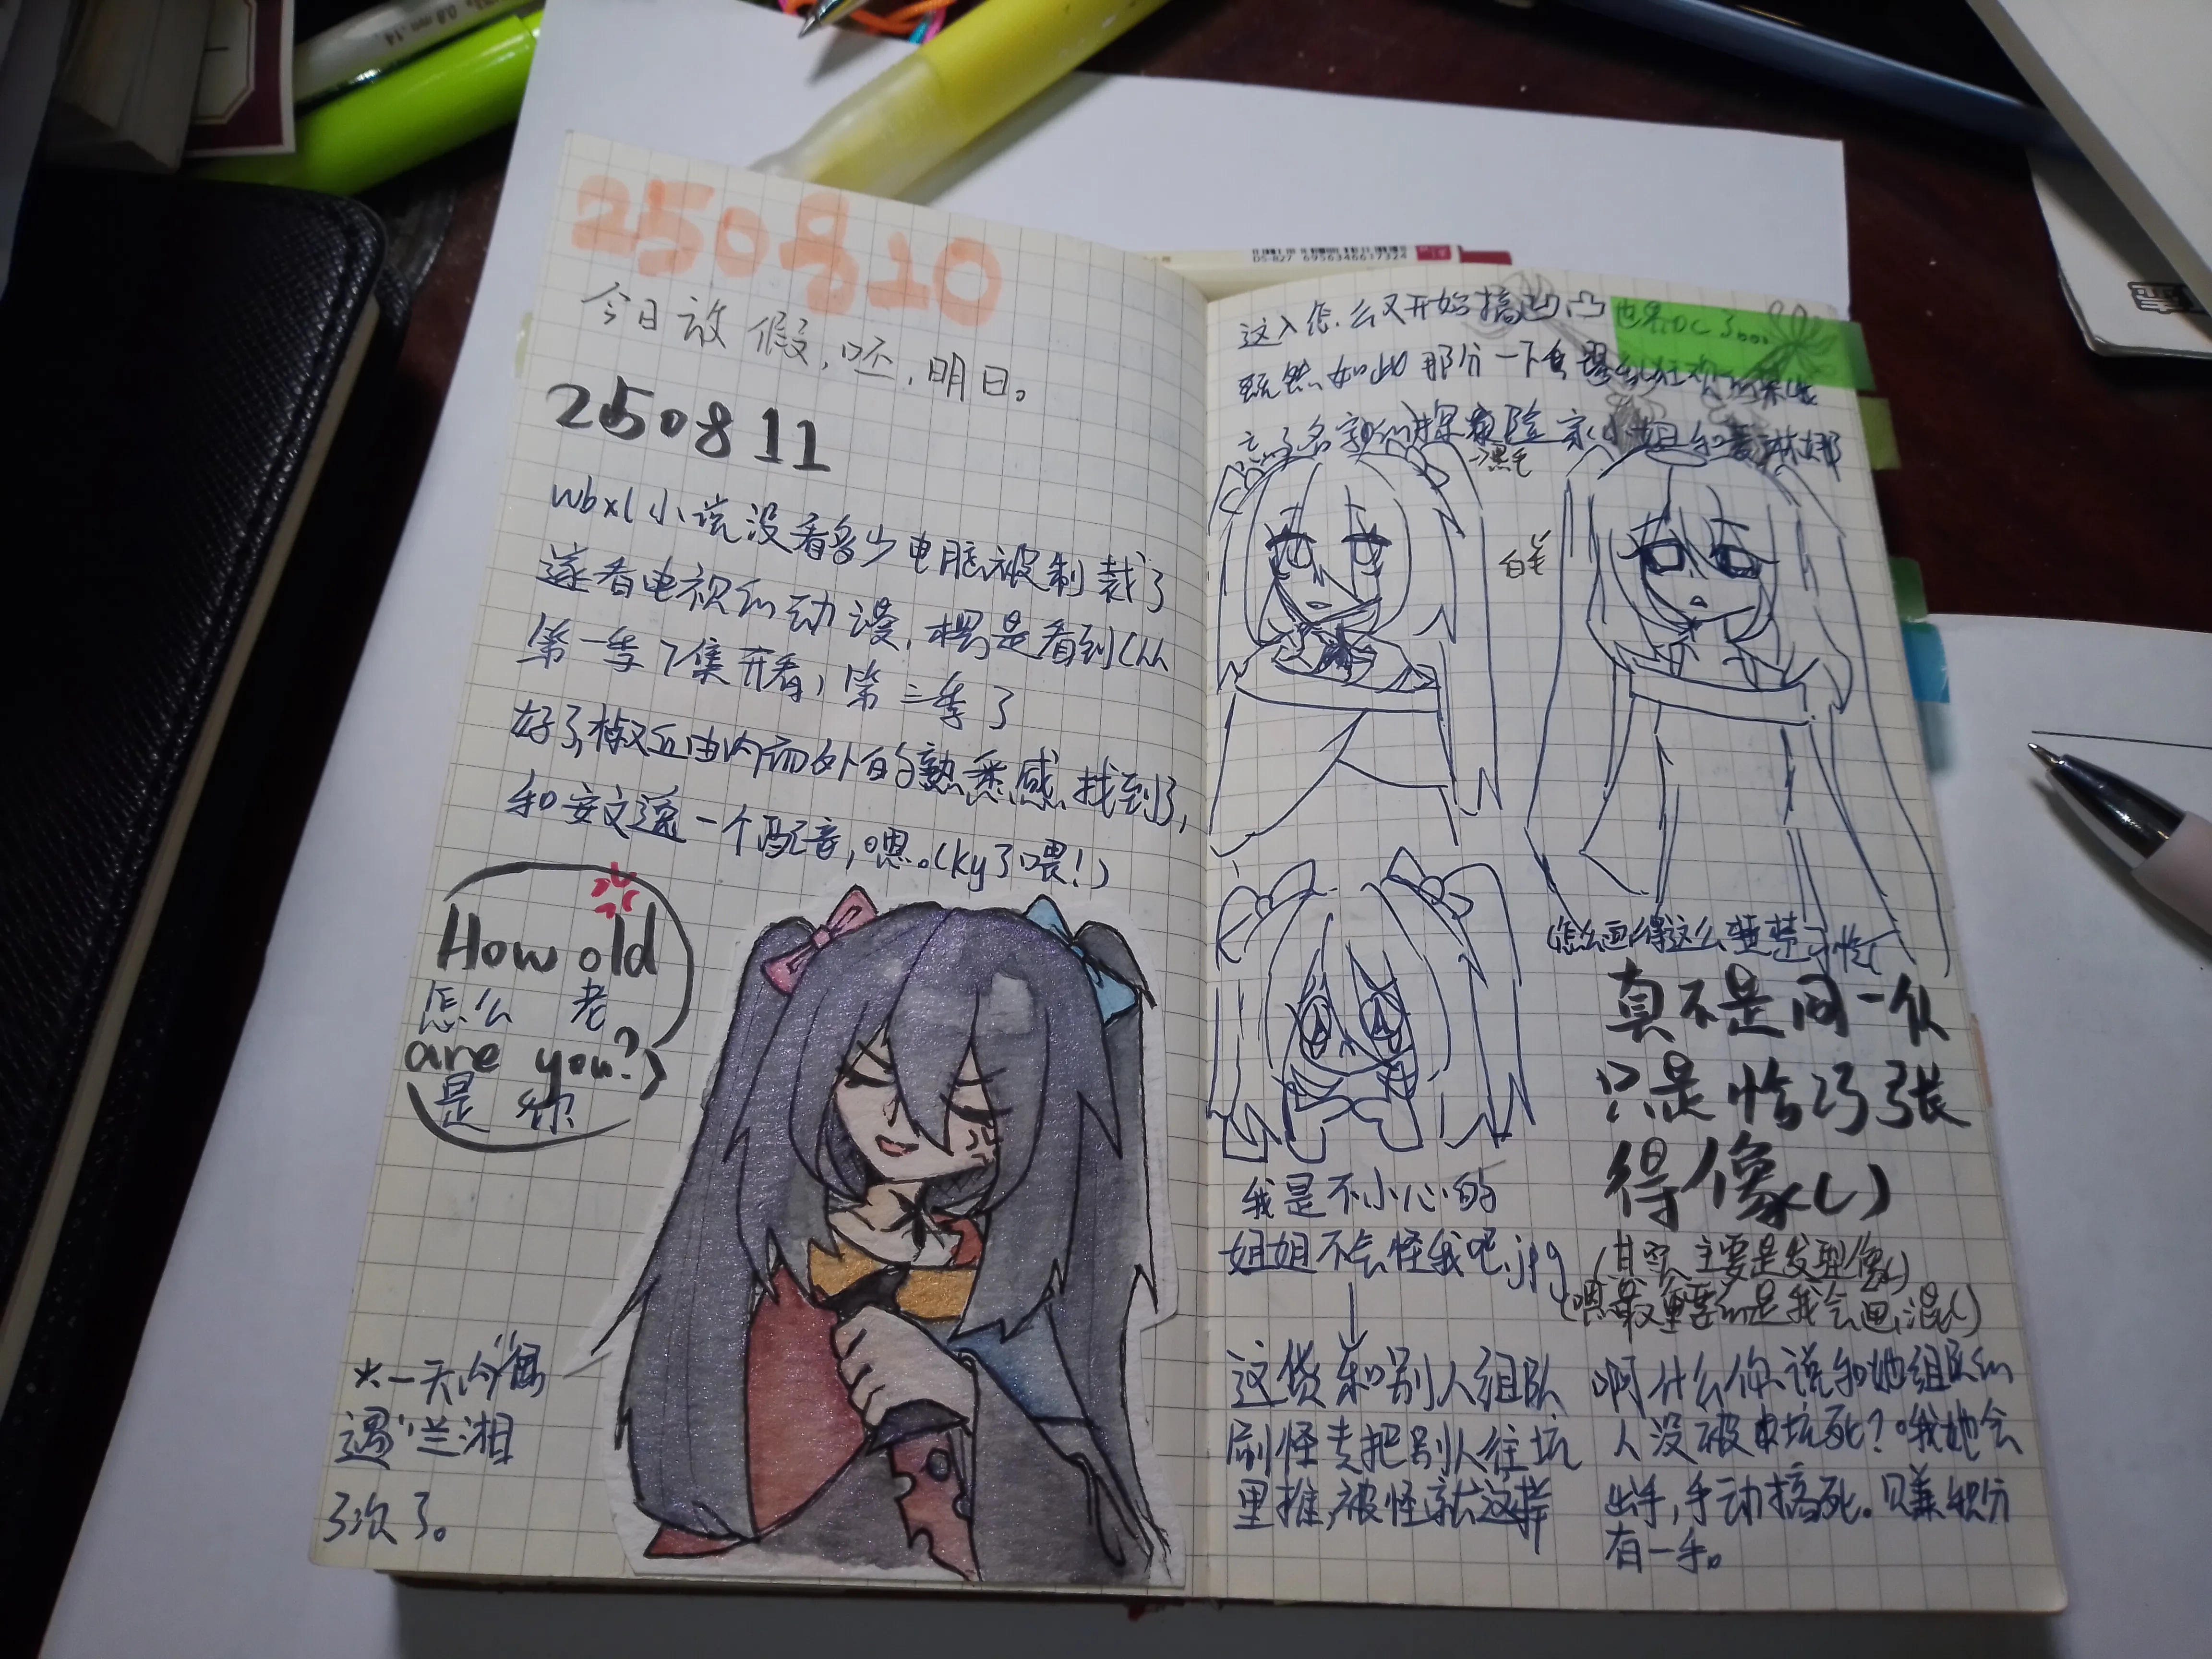 250810
今日放假,呸,明日。
250811
wbxl小说没看多少电脑被制裁了
遂看电视的动漫,楞是看到(hh
第一季7集开看,第三季了
好了,椒丘由内而外的熟悉感找到了,
和安文逸一个配音,嗯。(ky了喂!)
How old
怎么 老
are you?
是 你
*一天偶
遇兰湘
3次了。
这人怎么又开始搞凹凸
世界OC了。。。
既然如此那分一下
忘了名字的探险家小姐和 琳娜
→黑毛
白毛
(怎么画得这么楚楚可怜(
真不是同一人
只是恰巧张
得像()
(其实主要是发型像()
(嗯最重要的是我会画混()
我是不小心的
姐姐不会怪我吧.jpg
这货和别人组队
刷怪专把别人往坑
里推,被怪就这样
啊什么你说和她组队的
人没被坑死?哦她会
出手,手动搞死。只赚积分
有一手。
DS-827 6956346617324
0.8mm